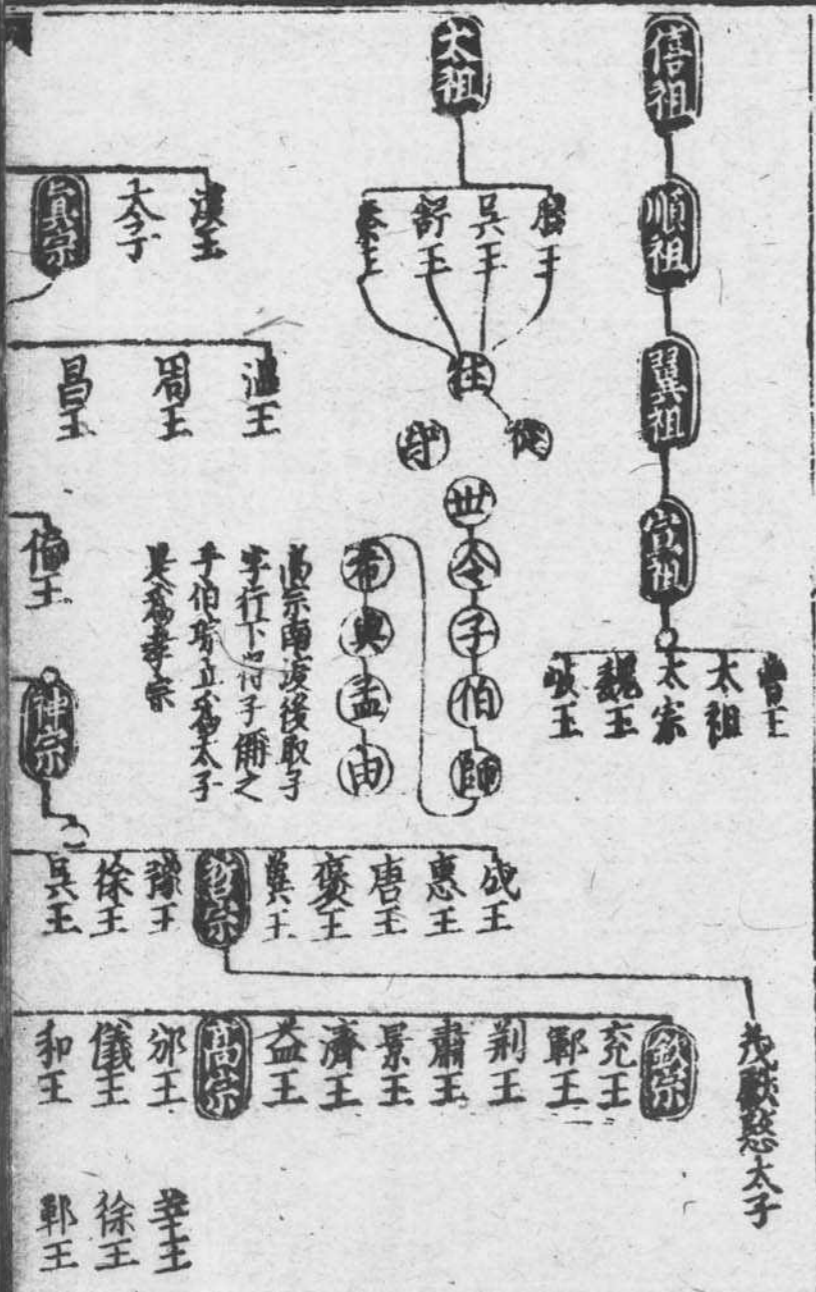 僖祖
順祖
翼祖
宣祖
曹王
太祖
太宗
魏王
岐王
太祖
滕王
吳王
舒王
秦王
從
守
世
令
子
伯
師
希
與
孟
由
高宗南渡後取子
字行下
子伯
立爲太子
是爲孝宗
漢王
太子
真宗
溫王
周王
昌王
神宗
成王
惠王
唐王
褒王
冀王
哲宗
豫王
徐王
吳王
茂
太子
欽宗
兖王
鄆王
荆王
肅王
景王
濟王
益王
高宗
邠王
儀王
和王
莘王
徐王
鄆王